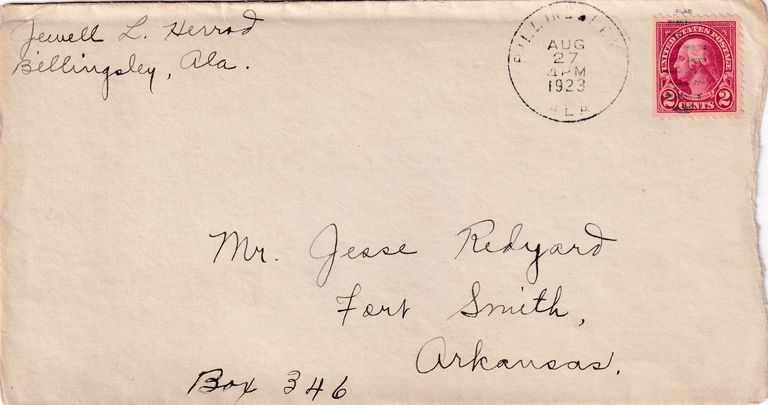 Jewell L. Herrod
Billingsley, Ala.
BILLINGSLEY
AUG
27
4PM
1923
ALA
UNITED STATES POSTAGE
2 CENTS 2
Mr. Jesse Redyard
Fort Smith,
Arkansas.
Box 346